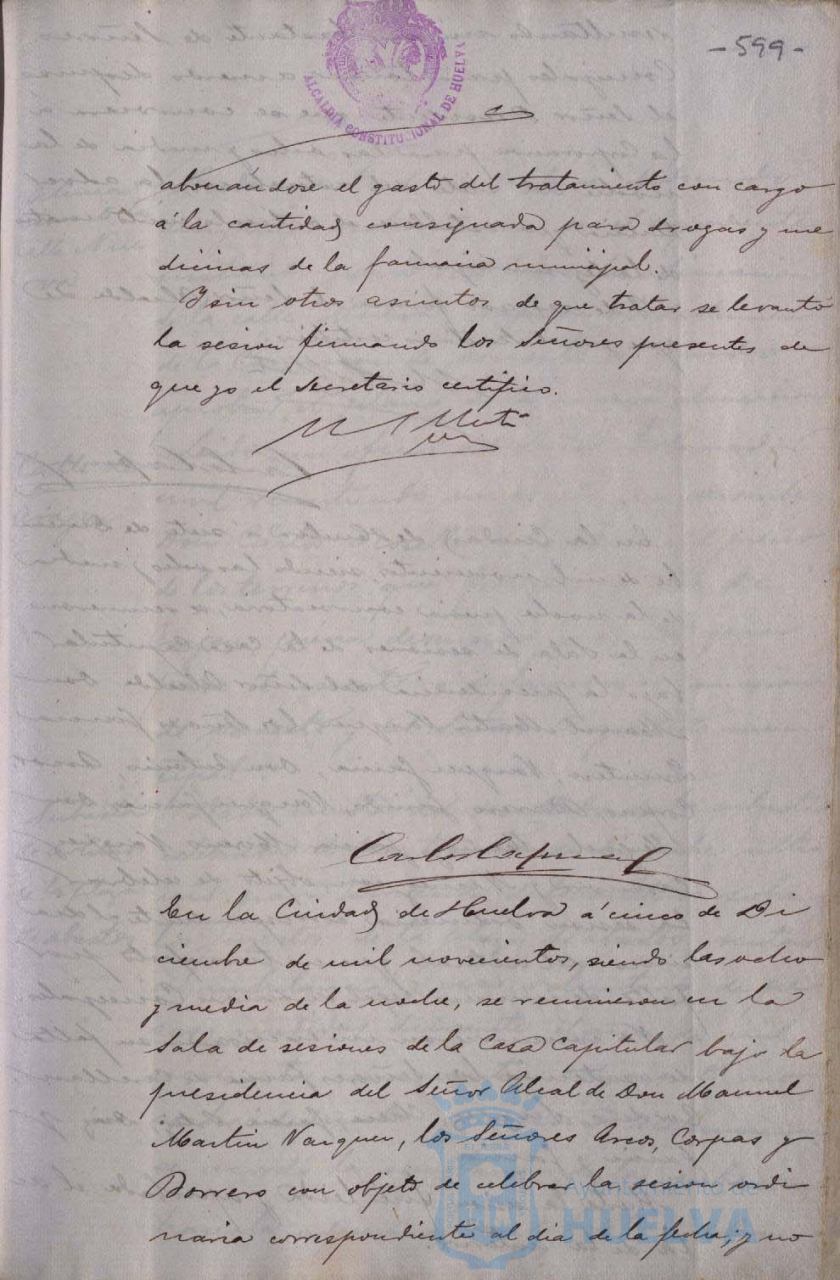 - 599 -
ALCALDÍA CONSTITUCIONAL DE HUELVA
abonándose el gasto del tratamiento con cargo
á la cantidad consignada para drogas y me
dicinas de la farmacia municipal.
Y sin otros asuntos de que tratar se levantó
la sesion firmando los Señores presentes de
que yo el Secretario certifico.
En la Ciudad de Huelva á cinco de Di
ciembre de mil novecientos, siendo las ocho
y media de la noche, se reunieron en la
Sala de sesiones de la Casa Capitular bajo la
presidencia del Señor Alcalde Don Manuel
Martin Vazquez, los Señores Arcos, Corpas y
Borrero con objeto de celebrar la sesion ordi
naria correspondiente al dia de la fecha; y no
Ayuntamiento de
HUELVA